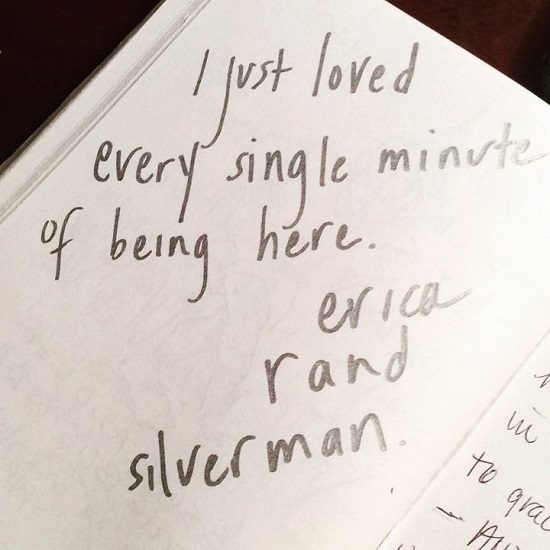 I just loved
every single minute
of being here.
erica
rand
silverman.
in
to